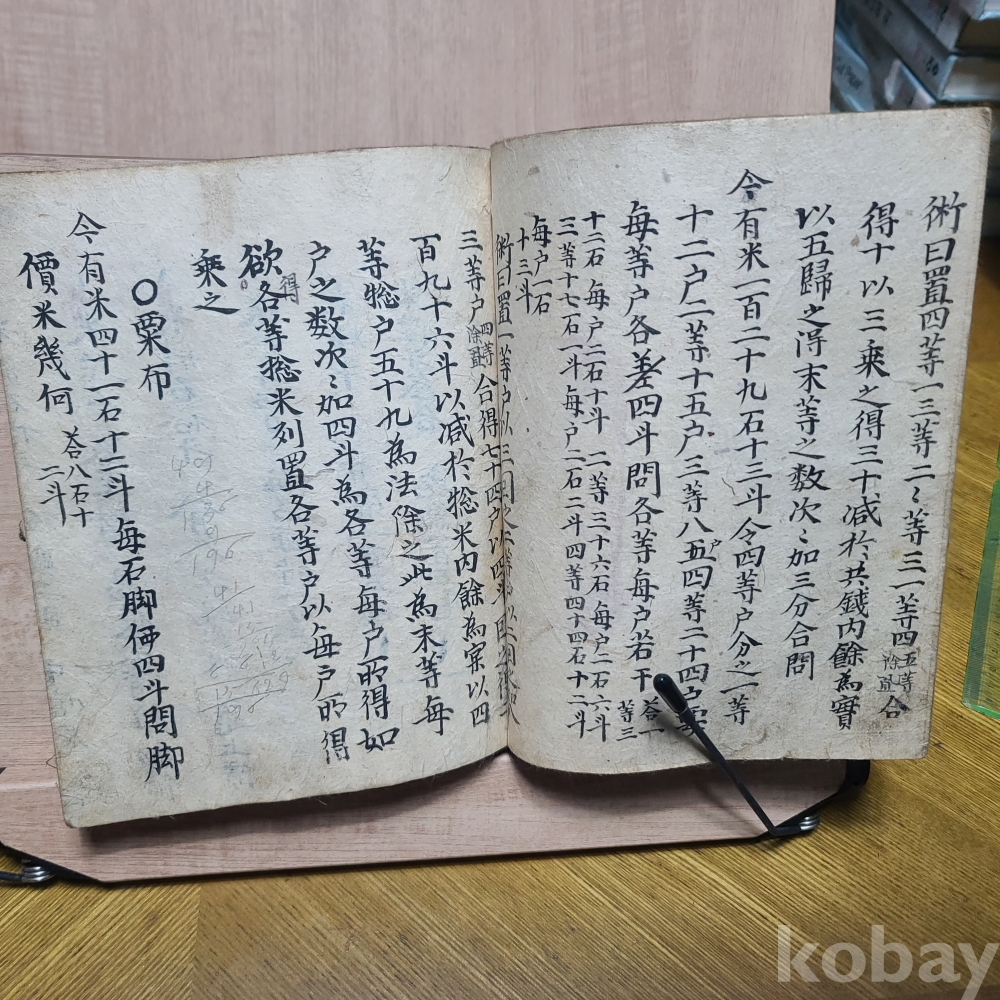 術曰置四等一三等二〻等三一等四五等除置合
得十以三乘之得三十減於共錢內餘為實
以五歸之得末等之数次〻加三分合問
今有米一百二十九石十三斗令四等户分之一等
十二户二等十五户三等八户五四等二十四户
每等户各差四斗問各等每户若干答一等三
十二石每户二石十斗二等三十六石每户二石六斗
三等十七石一斗每户二石二斗四等四十四石十二斗
每户一石
十三斗
術曰置一等户以三因之二等户以二因之
三等户四等除置合得七十四户以四斗因之得二
百九十六斗以减於㧾米內餘為实以四
等㧾户五十九為法除之此為末等每
户之数次〻加四斗為各等每户所得如
欲得各等㧾米列置各等户以每户所得
乘之
〇粟布
今有米四十一石十二斗每石脚伻四斗問脚
價米幾何答八石十二斗
kobay